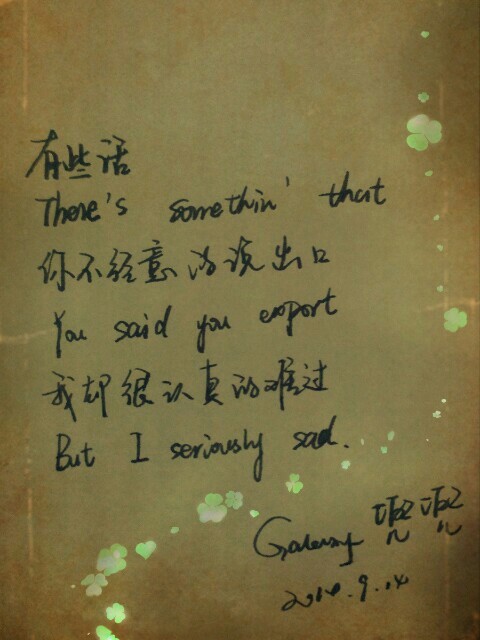 有些话
There's somethin' that
你不经意的说出口
You said you export
我却很认真的难过
But I seriously sad.
2014.9.14